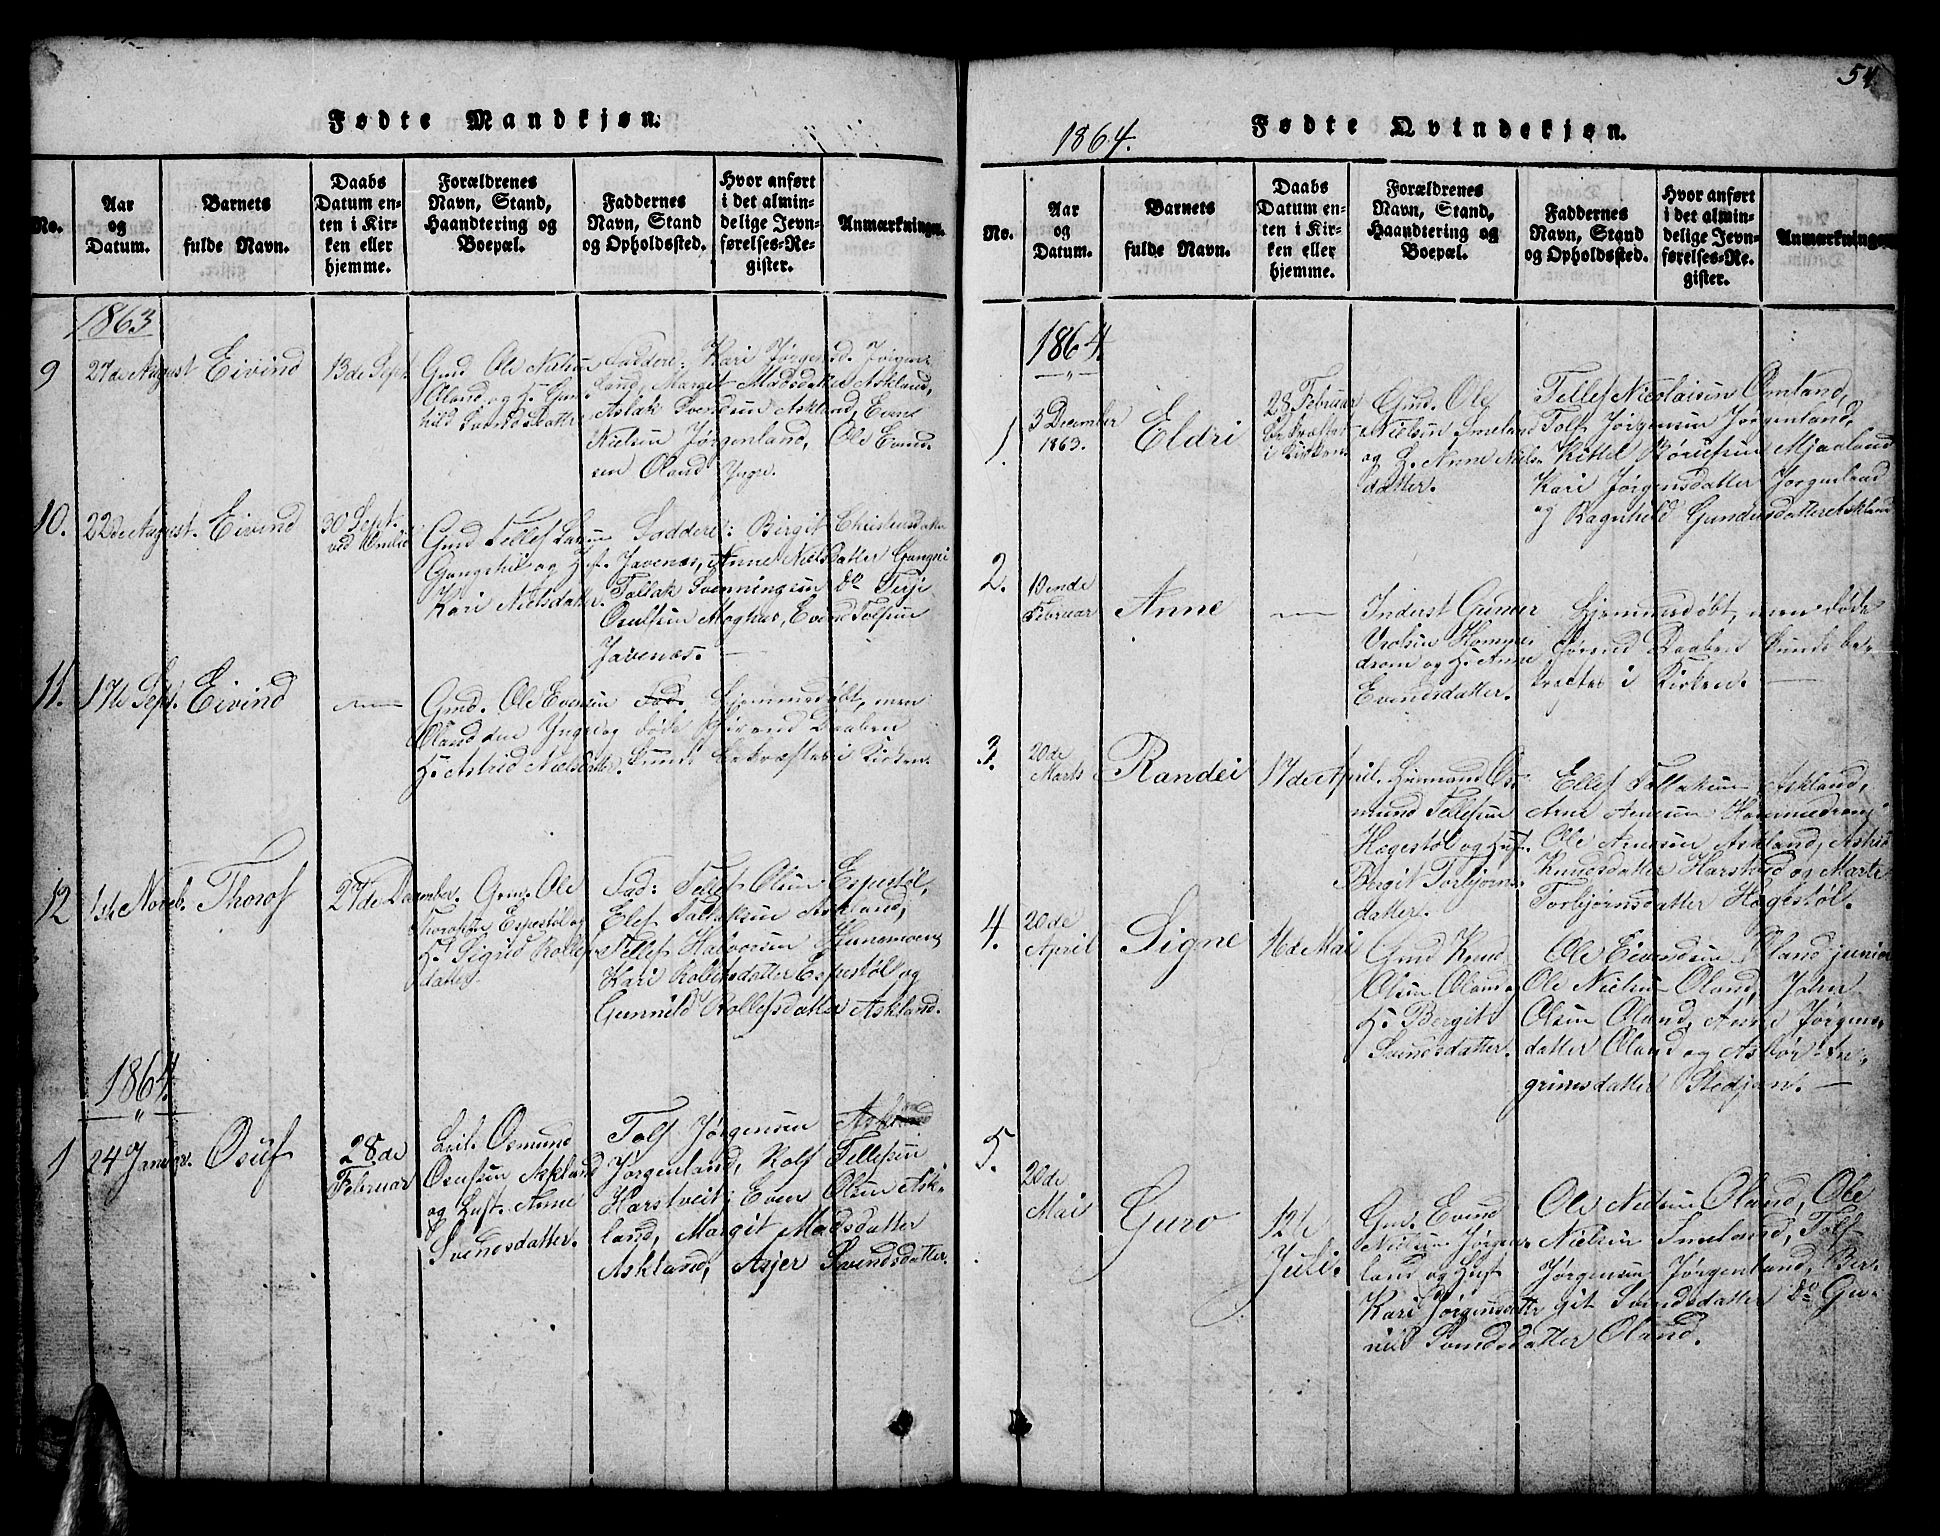 Fødte Mandkjøn.
No.
Aar og Datum.
Barnets fulde Navn.
Daabs Datum enten i Kirken eller hjemme.
Forældrenes Navn, Stand, Haandtering og Boepæl.
Faddernes Navn, Stand og Opholdssted.
Hvor anført i det almindelige Jevnførelses-Register.
Anmærkninger
1863
9 27de August Eivind 13de Sept.
Gmd Ole Nielsen
Øland og H. Gun
hild Svendsdatter
Faddere: Kari Jørgensd. Jørgen
land, Margit Madsdatter Askland,
Aslak Svendsen Askland, Evend
Nielsen Jørgenland, Ole Evend
sen Øland Yngr.
10. 22de August. Eivind 30 Sept.
Gmd Tellef
og Hust.
Kari Nielsdatter.
Faddere: Birgit Christensdatter
Javenæs, Anne Nielsdatter
Tallak Svenningsen do Terje
Osulfsen Evend Tolfsen
Javenæs. —
11. 17de Sept. Eivind —
Gmd. Ole Evensen
Øland den Yngre og
H. Astrid Nielsdatter.
Fad. Hjemmedøbt, men
døde førend Daaben
kunde bekræftes i Kirken.
12 1ste Noveb. Thorof 27de December.
Gm. Ole
Thorofsen Espestøl og
H. Sigrid Rollefs
datter
Fad: Tellef Olsen Espestøl,
Elef Tallaksen Askland,
Tellef Halvorsen Hunemoen,
Kari Rollefsdatter Espestøl og
Gunnild Rollefsdatter Askland.
1864.
1 24 Januar. Osuf 28de
Februar
Leil. Osmund
Osufsen Askland
og Hust. Anne
Svendsdatter.
Tolf Jørgensen Askland
Jørgenland, Rolf Tellefsen
Harstveit, Even Olsen Ask-
land, Margit Madsdatter
Askland, Asjer Svendsdatter.
54
1864. Fødte Qvindekjøn.
No.
Aar og Datum.
Barnets fulde Navn.
Daabs Datum enten i Kirken eller hjemme.
Forældrenes Navn, Stand, Haandtering og Boepæl.
Faddernes Navn, Stand og Opholdssted.
Hvor anført i det almindelige Jevnførelses-Register.
Anmærkninger
1864.
1. 3 December
1863. Eldri 28 Februar
bekræftet
i Kirken
Gmd. Ole
Nielsen Smeland
og H. Anne Niels
datter.
Tellef Nicolaisen Omland,
Tolf Jørgensen Jørgenland,
Kittel Børufsen Mjaaland
Kari Jørgensdatter Jørgenland
og Ragnhild Gundersdatter Askland
2. 19ende
Februar Anne —
Inderst Gunner
Vrolsen Homme
drom og H. Anne
Evensdatter.
Hjemmedøbt, men døde
førend Daaben kunde be-
kræftes i Kirken. —
3. 20de
Marts Randei 17de April.
Huusmand Os
mund Tellefsen
Hagestøl og Hust.
Bergit Torbjørns
datter.
Ellef Tallaksen Askland,
Arne Arnesen Hommedrom,
Ole Arnesen Askland, Astrid
Knudsdatter Harstveid og Marte
Torbjørnsdatter Hagestøl.
4. 20de
April Signe 16de Mai
Gmd Knud
Olsen Øland og
H. Bergit
Svendsdatter.
Ole Eivendsen Øland junior
Ole Nielsen Øland, John
Olsen Øland, Anne Jørgens-
datter Øland og Aslør In-
grimsdatter Stedjan. —
5. 20de
Mai Guro 12te
Juli.
Gm. Evend
Nielsen Jørgen-
land og Hust
Kari Jørgensdatter
Ole Nielsen Øland, Ole
Nielsen Smeland, Tolf
Jørgensen Jørgenland, Ber-
git Svendsdatter do Gu-
nild Svendsdatter Øland.